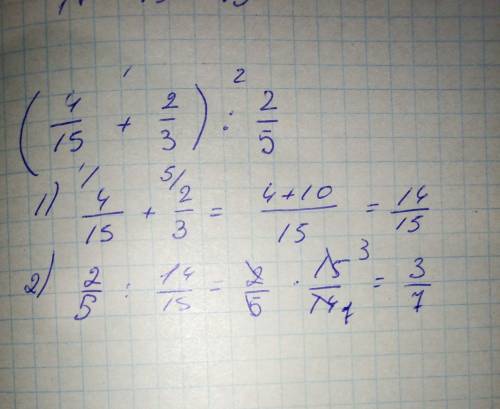 (4/15 + 2/3) : 2/5
1) 4/15 + 2/3 = 4+10/15 = 14/15
2) 2/5 : 14/15 = 2/5 · 15/14 = 3/7